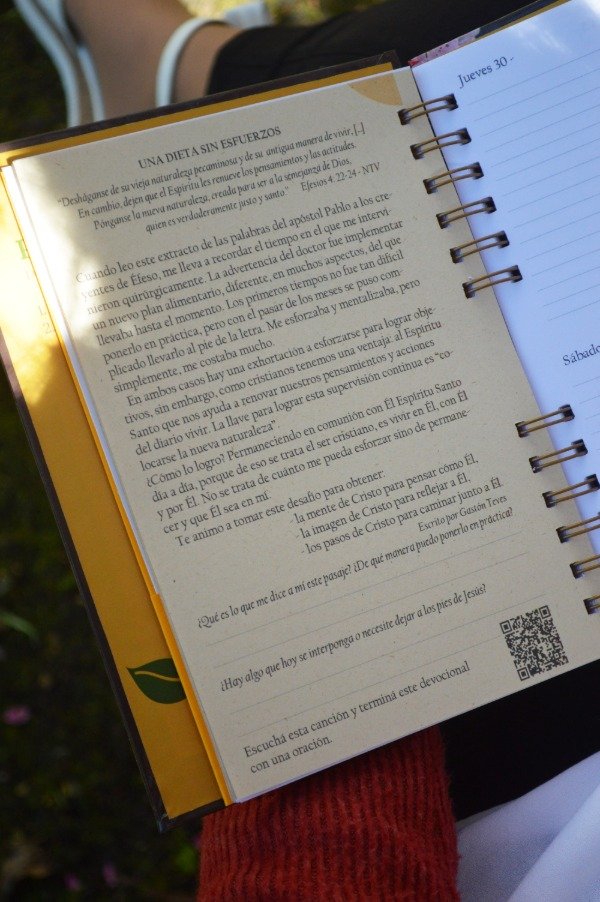 UNA DIETA SIN ESFUERZOS
"Desháganse de su vieja naturaleza pecaminosa y de su antigua manera de vivir. [...]
En cambio, dejen que el Espíritu les renueve los pensamientos y las actitudes.
Pónganse la nueva naturaleza, creada para ser a la semejanza de Dios,
quien es verdaderamente justo y santo." Efesios 4. 22-24 - NTV
Cuando leo este extracto de las palabras del apóstol Pablo a los cre-
yentes de Éfeso, me lleva a recordar el tiempo en el que me intervi-
nieron quirúrgicamente. La advertencia del doctor fue implementar
un nuevo plan alimentario, diferente, en muchos aspectos, del que
llevaba hasta el momento. Los primeros tiempos no fue tan difícil
ponerlo en práctica, pero con el pasar de los meses se puso com-
plicado llevarlo al pie de la letra. Me esforzaba y mentalizaba, pero
simplemente, me costaba mucho.
En ambos casos hay una exhortación a esforzarse para lograr obje-
tivos, sin embargo, como cristianos tenemos una ventaja: al Espíritu
Santo que nos ayuda a renovar nuestros pensamientos y acciones
del diario vivir. La llave para lograr esta supervisión continua es "co-
locarse la nueva naturaleza".
¿Cómo lo logro? Permaneciendo en comunión con Él Espíritu Santo
día a día, porque de eso se trata el ser cristiano, es vivir en Él, con Él
y por Él. No se trata de cuánto me pueda esforzar sino de permane-
cer y que Él sea en mí.
Te animo a tomar este desafío para obtener:
- la mente de Cristo para pensar cómo Él.
- la imagen de Cristo para reflejar a Él.
- los pasos de Cristo para caminar junto a Él.
Escrito por Gastón Teves
¿Qué es lo que me dice a mí este pasaje? ¿De qué manera puedo ponerlo en práctica?
¿Hay algo que hoy se interponga o necesite dejar a los pies de Jesús?
Escuchá esta canción y terminá este devocional
con una oración.
Jueves 30 -
Sábado